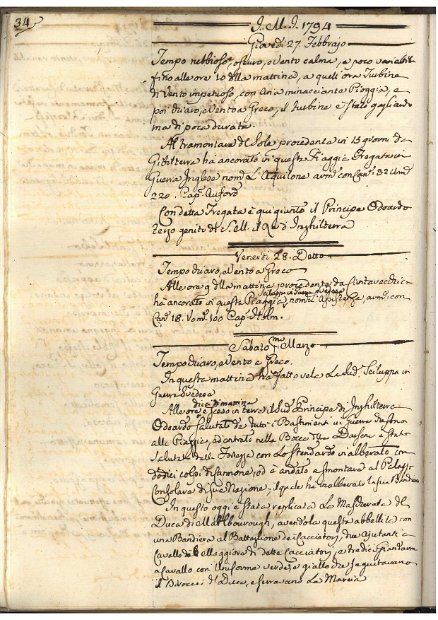 34.
J. M. J. 1794
Giovedì 27 Febbrajo
Tempo nebbioso, oscuro, e Vento calma, e poco variabile
fino alle ore 10 della mattina, a quell'ora Turbine
di Vento imperioso, con Aria minacciante Pioggia, e
poi chiaro, e Vento a Greco, il turbine è stato gagliardo
ma di poca durata.
Al tramontare del Sole procedente in 15 giorni da
Gibilterra ha ancorato in queste Piaggie Fregata in
Guerra Inglese nom.ta L'Aquilone arm. con Can. 32
220. Cap.
Con detta Fregata è qui giunto il Principe Odoardo
Terzo genito di S. M. Inghilterra
Venerdì 28. Detto
Tempo chiaro, e Vento a Greco
Alle ore 9 della mattina procedente da Civitavecchia
ha ancorato in questa Piaggia nom. arm. con
Can. 18. Vom. 100 Cap.
Sabato Marzo
Tempo chiaro, e Vento a Greco.
In questa mattina ha fatto vela la Scialuppa in
Guerra Svedese
Alle ore dieci di mattina è sceso in terra il Principe di Inghilterra
Odoardo salutato da tutti i Bastimenti in Guerra
alle Piaggie, ed entrato nella Bocca della Darsena è stato
salutato dalla Fortezza con lo Stendardo inalberato con
dodici colpi di cannone, ed è andato a smontare al Palazzo
Consolare di sua Nazione, il quale ha inalberato la sua Bandiera
In questo oggi è stata replicata la Mascherata del
Duca di Marlbourough, avendola questa abbellita con
una Bandiera al Battaglione de Cacciatori, due Ajutanti a
Cavallo alla guardia di detti Cacciatori, e tredici
a Cavallo con Uniforme verde, e giallo che seguitavano
e serravano la Marcia